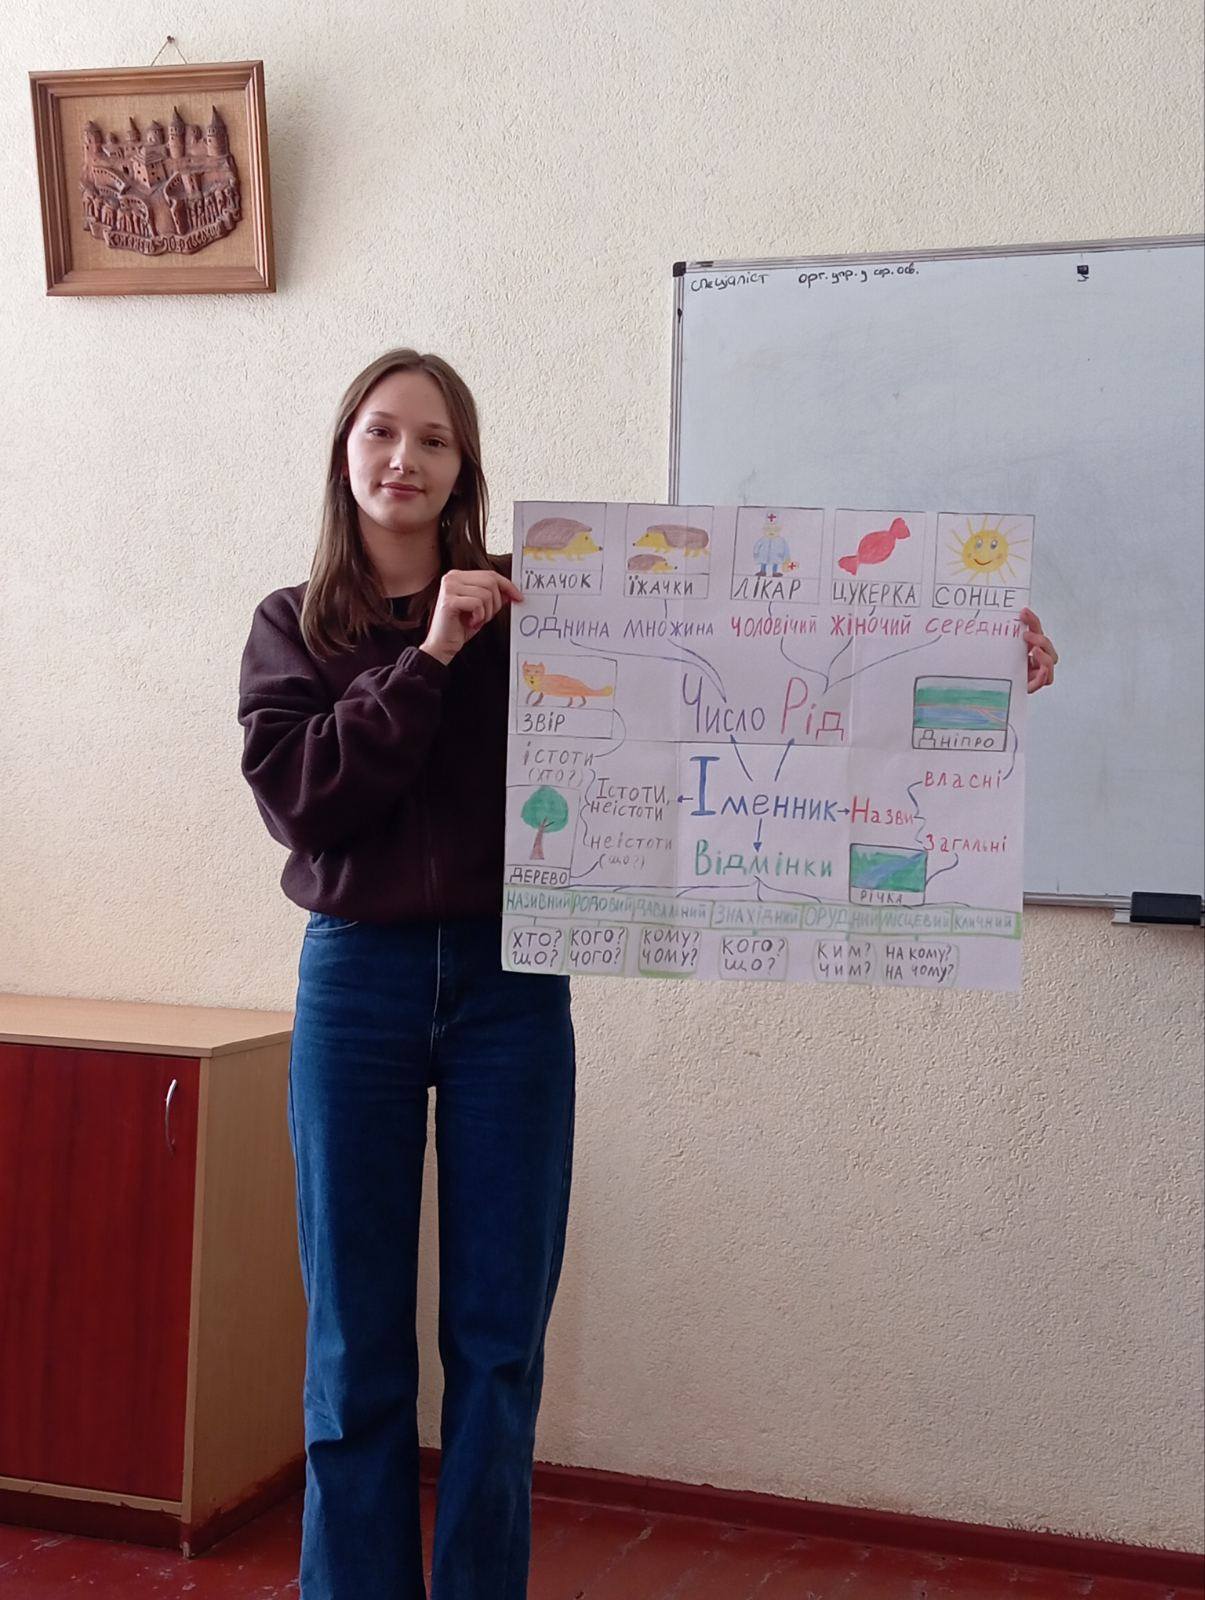 спеціаліст орг. упр. у ср. осв.
ЇЖАЧОК
ЇЖАЧКИ
ЛІКАР
ЦУКЕРКА
СОНЦЕ
ОДНИНА
МНОЖИНА
ЧОЛОВІЧИЙ
ЖІНОЧИЙ
СЕРЕДНІЙ
ЗВІР
Число
Рід
ДНІПРО
істоти
(ХТО?)
Істоти,
неістоти
Іменник
Назви
власні
загальні
неістоти
(ЩО?)
Відмінки
ДЕРЕВО
РІЧКА
НАЗИВНИЙ
РОДОВИЙ
ДАВАЛЬНИЙ
ЗНАХІДНИЙ
ОРУДНИЙ
МІСЦЕВИЙ
КЛИЧНИЙ
ХТО?
ЩО?
КОГО?
ЧОГО?
КОМУ?
ЧОМУ?
КОГО?
ЩО?
КИМ?
ЧИМ?
НА КОМУ?
НА ЧОМУ?